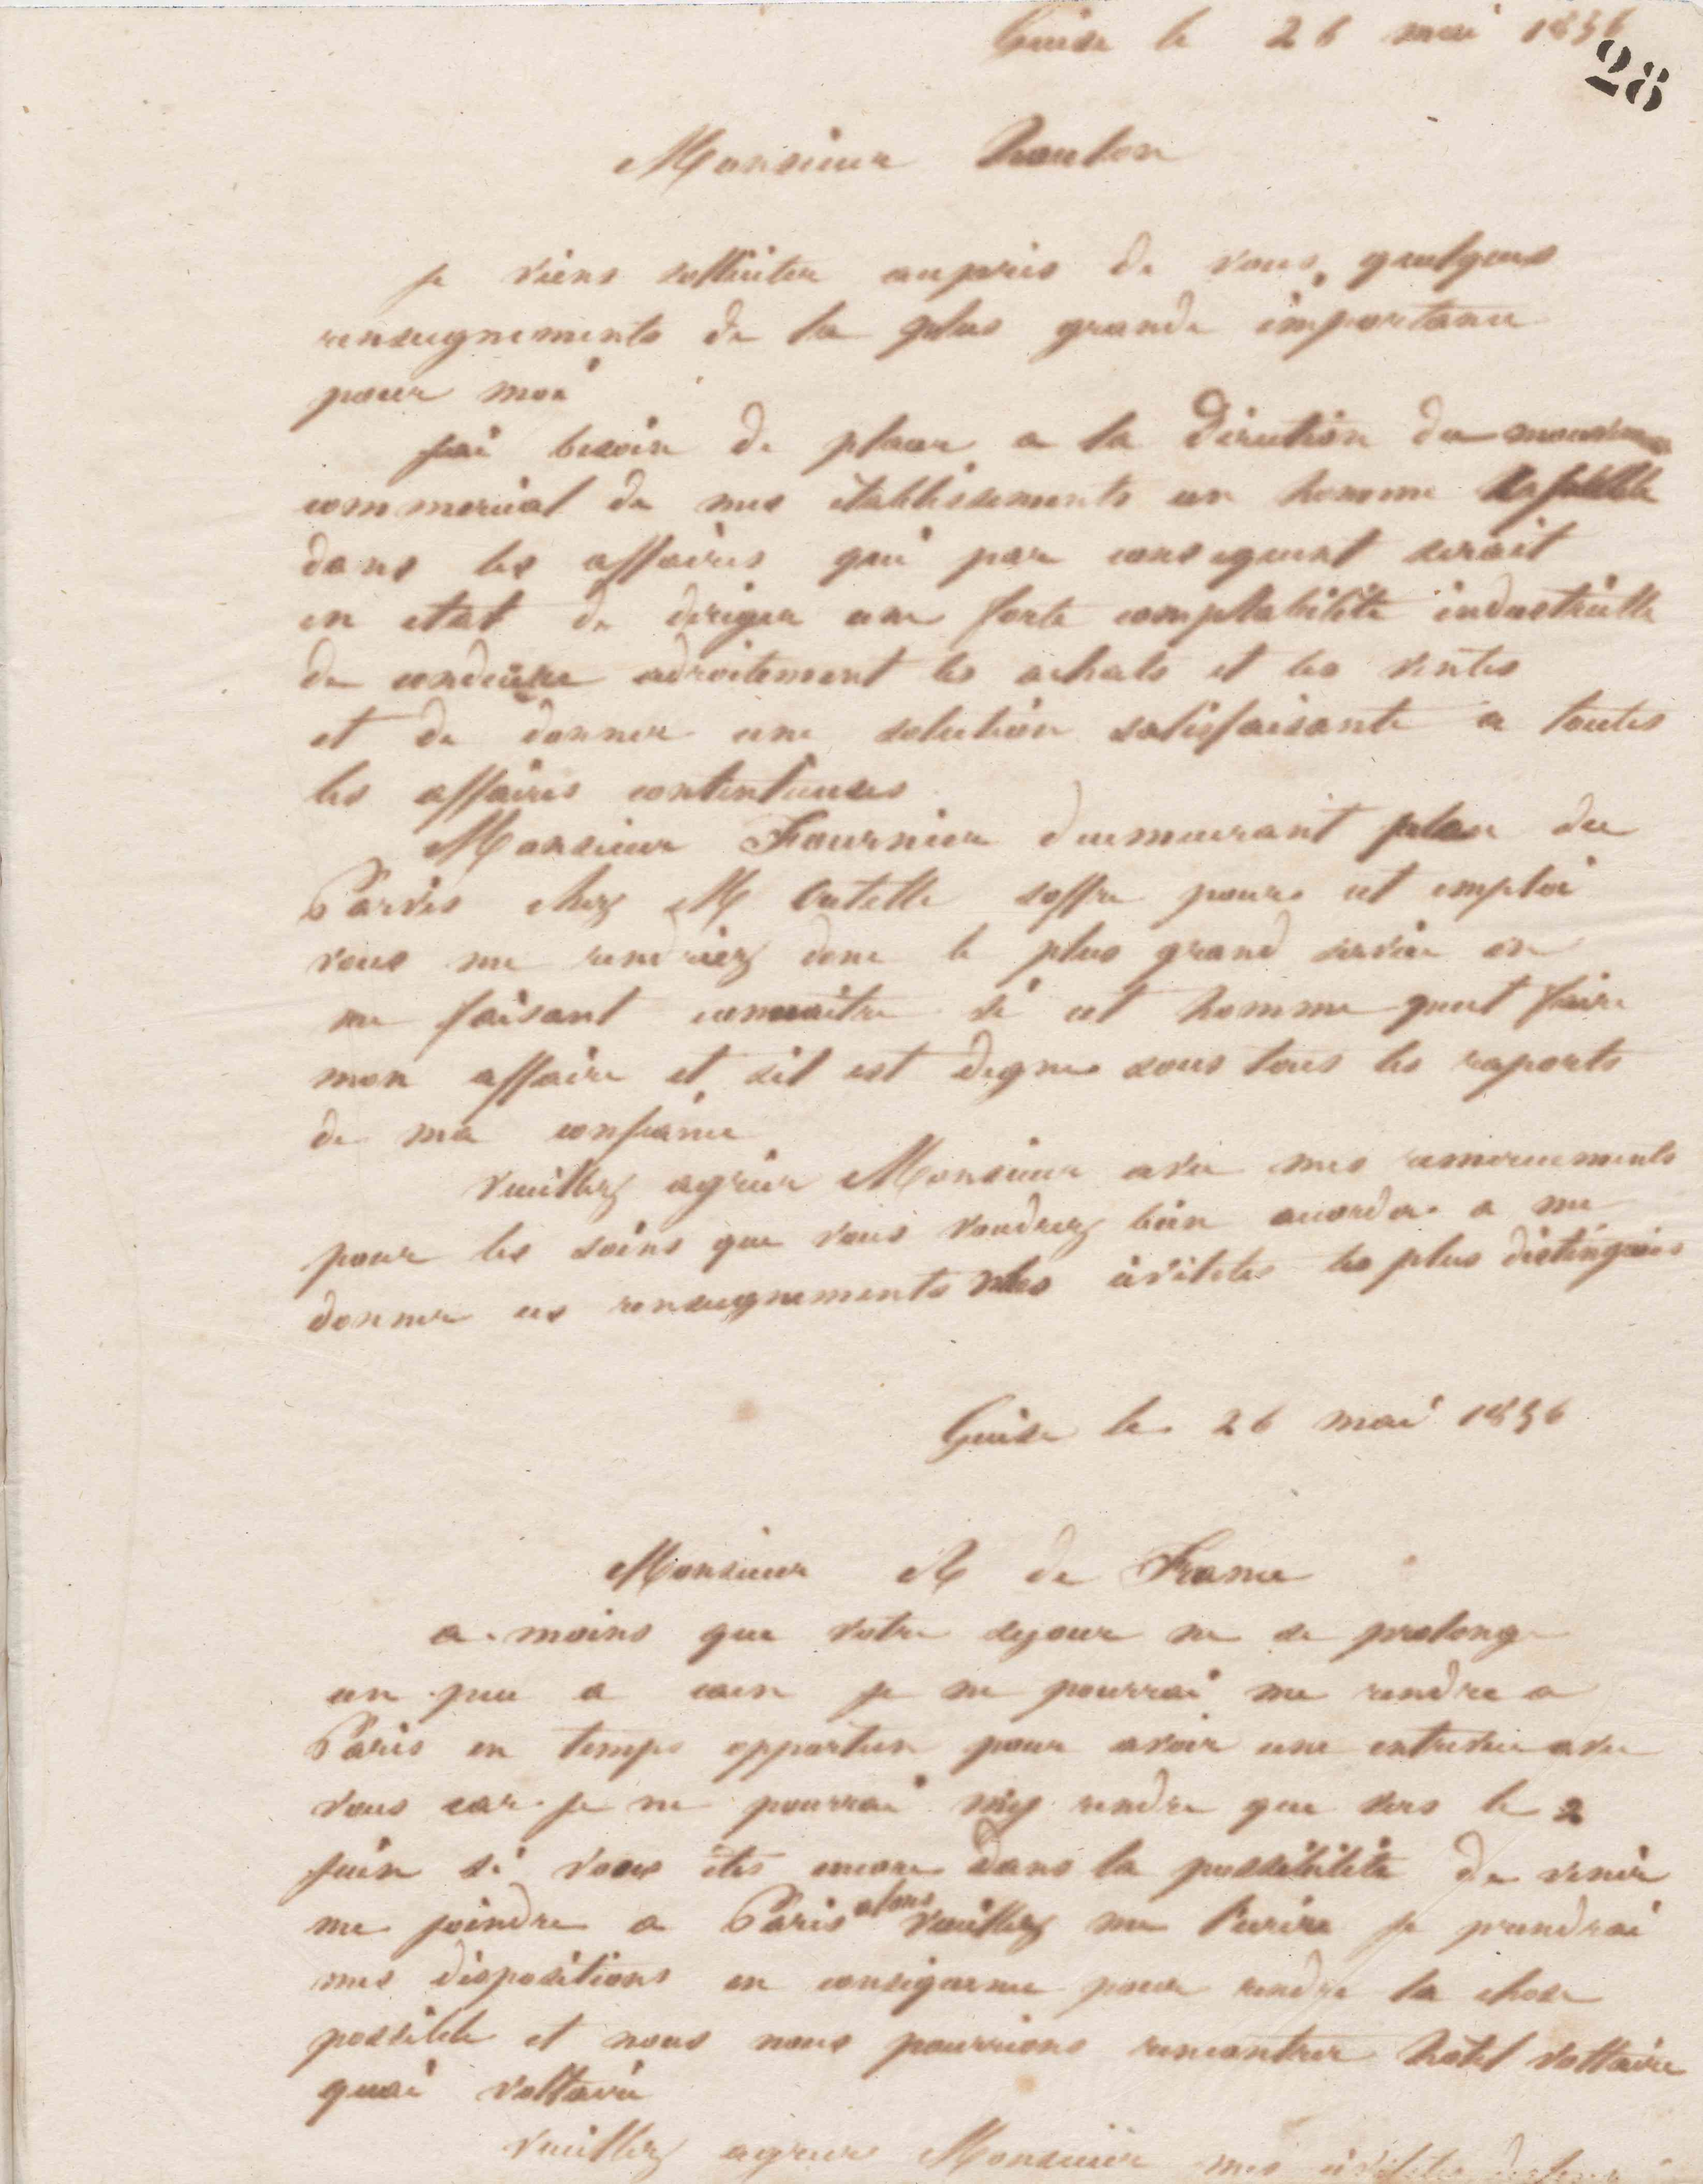 Guise le 26 mai 1856
28
Monsieur
je viens solliciter aupris de vous quelques
renseignements de la plus grande importance
pour moi
jai besoin de placer a la Direction du mouvement
commercial de mes établissements un homme
dans les affaires qui par consequent serait
en etat de diriger une forte comptabilité industrielle
de conduire adroitement les achats et les ventes
et de donner une solution satisfaisante a toutes
les affaires contentieuses
Monsieur Fournier dumeurant place du
Parvis chez M soffre pour cet emploi
vous me rendriez donc le plus grand service en
me faisant connaitre si cet homme peut faire
mon affaire et sil est digne sous tous les raports
de ma confiance
veuillez agréer Monsieur avec mes remerciements
pour les soins que vous voudrez bien accorder a me
donner ces renseignements mes civilités les plus distinguées
Guise le 26 mai 1856
Monsieur R de France
a moins que votre sejour ne se prolonge
un peu a caen je ne pourrai me rendre a
Paris en temps opportun pour avoir une entrevue avec
vous car je ne pourrai my rendre que vers le 2
juin si vous êtes encore dans la possibilité de venir
me joindre a Paris alors veuillez me lecrire je prendrai
mes dispositions en consequence pour rendre la chose
possible et nous nous pourrions rencontrer hotel voltaire
quai voltaire
veuillez agreer Monsieur mes civilités